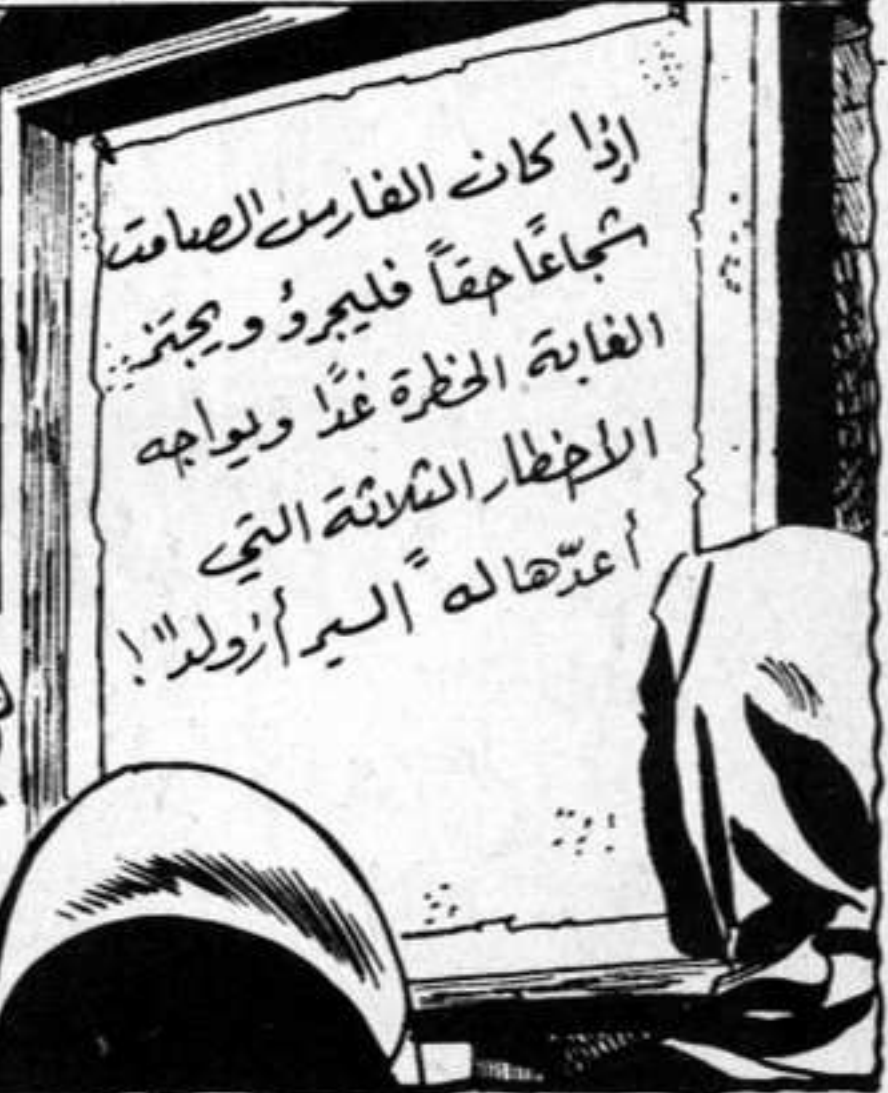 إذا كان الفارس الصامت
شجاعًا حقاً فليجرؤ ويجتز
الغابة الخطرة غدًا ويواجه
الأخطار الثلاثة التي
أعدّها له "السير أرولد"!